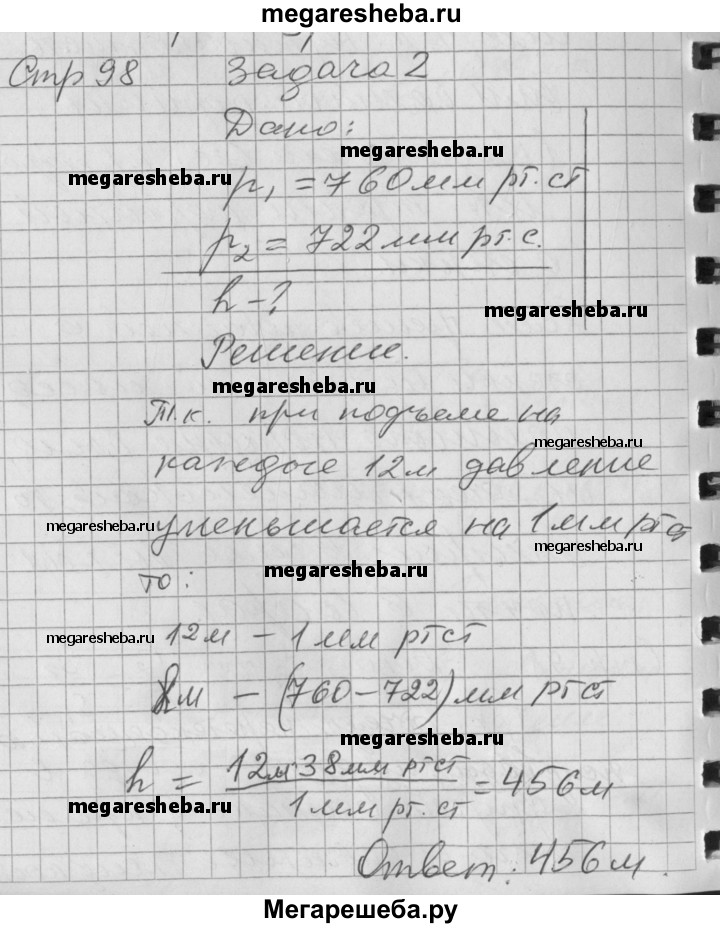 megaresheba.ru
Стр 98 Задача 2
Дано:
megaresheba.ru
megaresheba.ru
p₁ = 760 мм рт. ст
p₂ = 722 мм рт. с.
h - ?
megaresheba.ru
Решение.
megaresheba.ru
Т.к. при подъеме на
megaresheba.ru
каждые 12 м давление
megaresheba.ru
уменьшается на 1 мм рт ст
megaresheba.ru
megaresheba.ru
то:
megaresheba.ru
12 м - 1 мм рт ст
м - (760 - 722) мм рт ст
megaresheba.ru
h = 12 м · 38 мм рт ст / 1 мм рт. ст = 456 м
megaresheba.ru
Ответ: 456 м.
Мегарешеба.ру